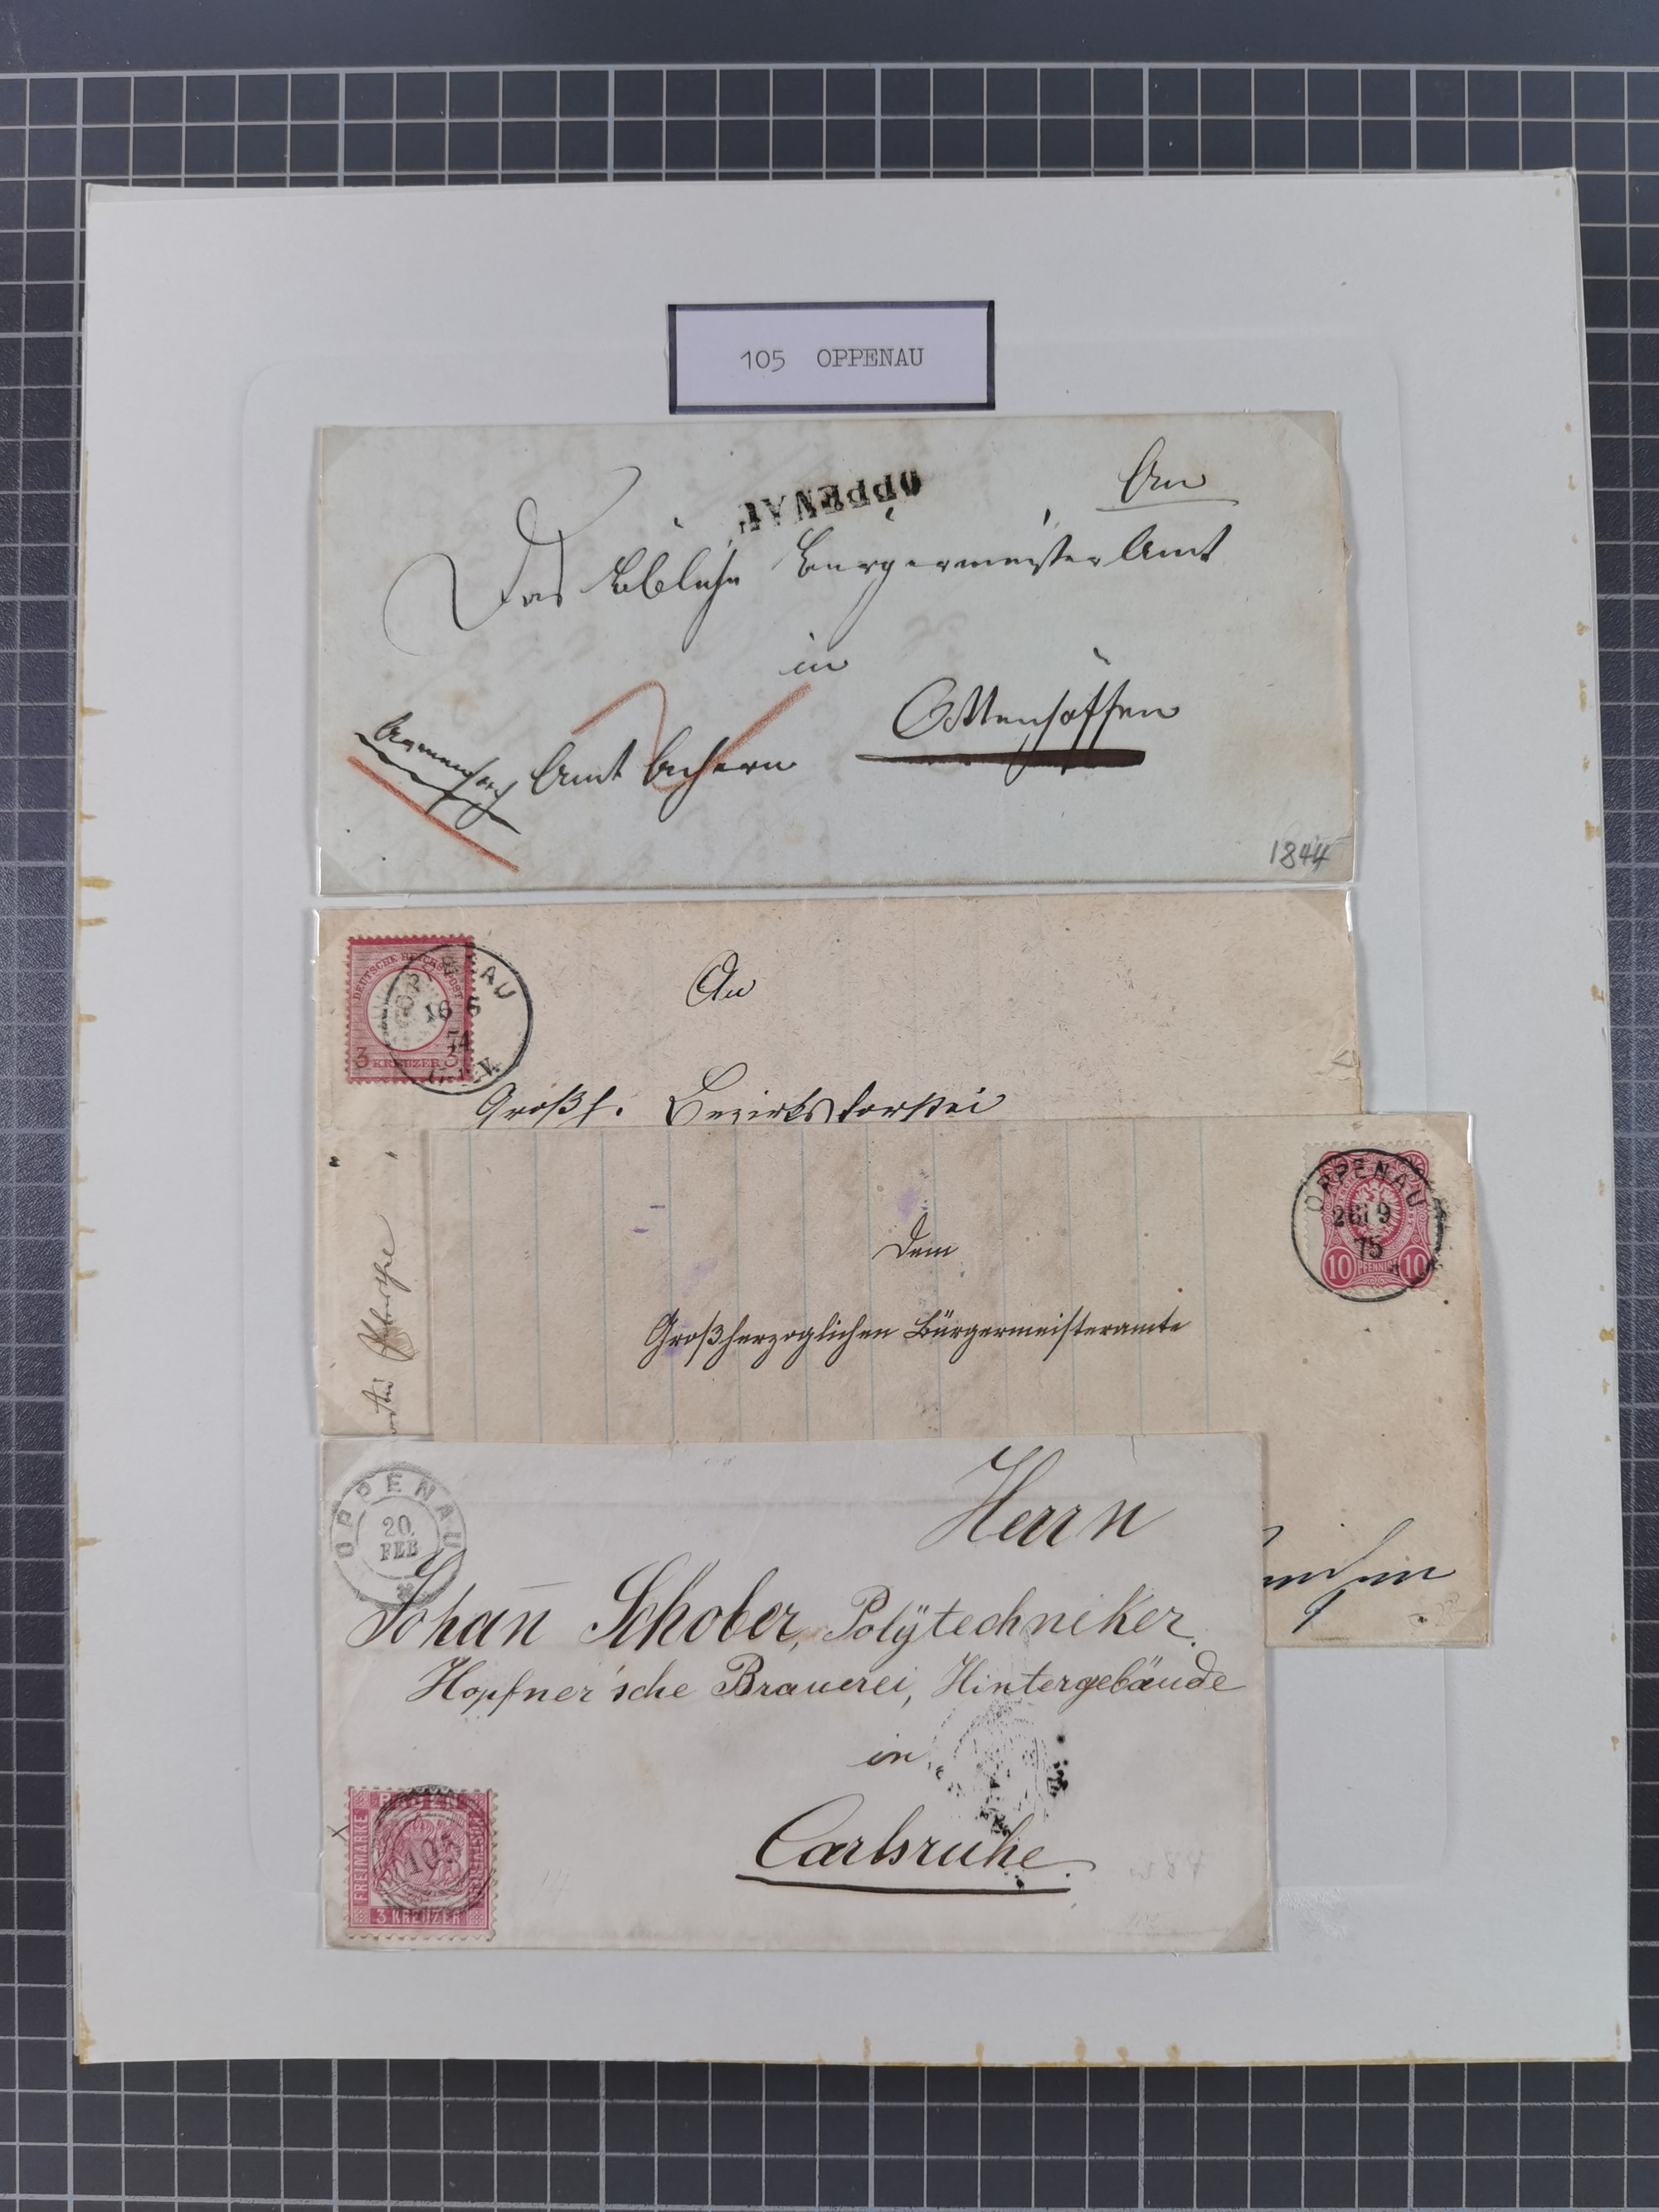 105 OPPENAU
OPPENAU
An
Das Löbliche Bürgermeister Amt
in
Ottenhöffen
Amt Achern
Armensach
1844
DEUTSCHE REICHS-POST
3 KREUZER 3
OPPENAU
16 6
74
An
Großh. Bezirksforstei
Dem
Großherzoglichen Bürgermeisteramte
OPPENAU
26 9
75
10 PFENNIG 10
OPPENAU
20.
FEB
Herrn
Johan̄ Schober, Polÿtechniker.
Hopfner'sche Brauerei, Hintergebäude
in
Carlsruhe.
BADEN
FREIMARKE
POSTVEREIN
3 KREUZER
105